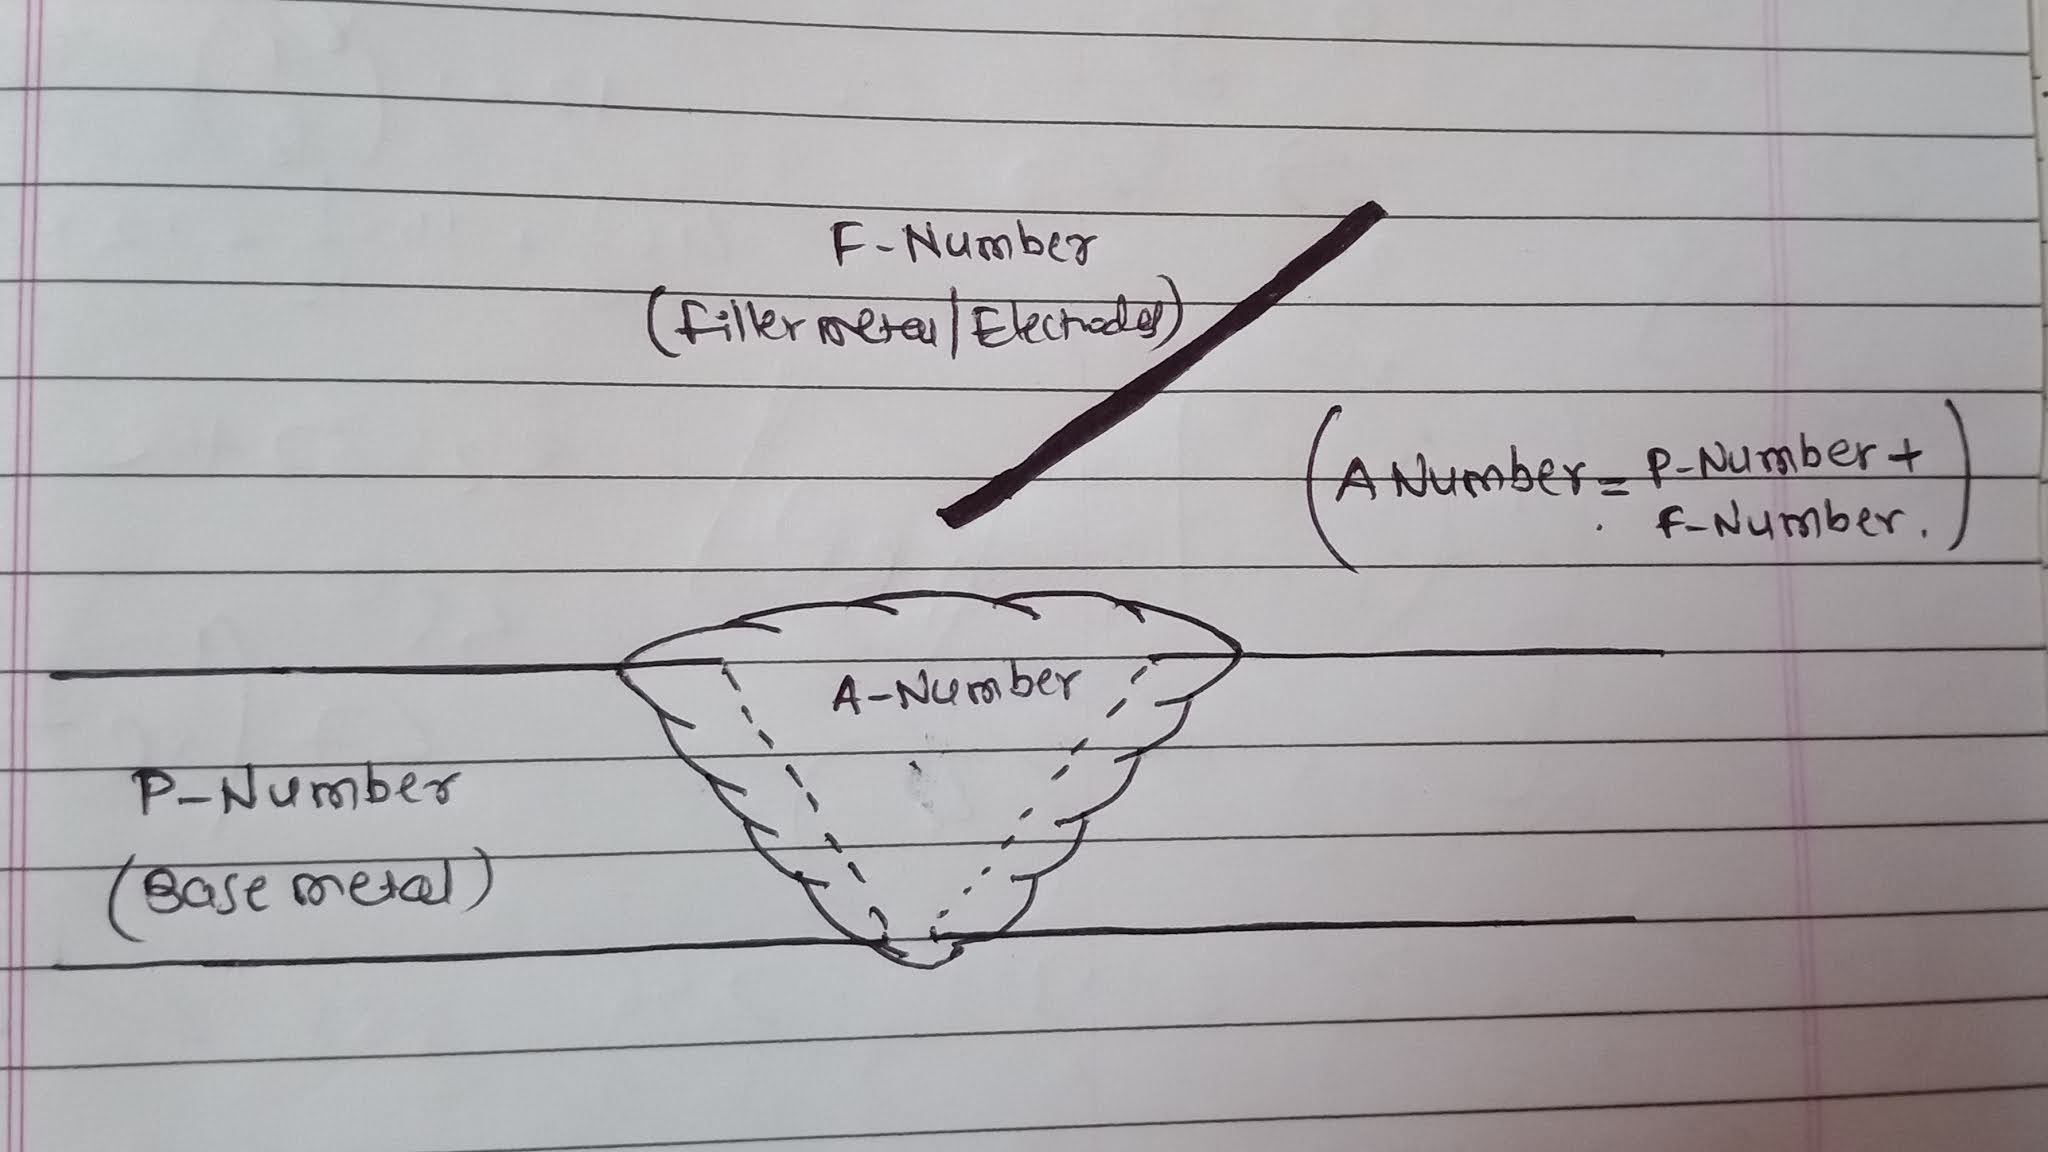 F-Number
(Filler metal/Electrodes)
(A Number = P-Number +
F-Number.)
A-Number
P-Number
(Base metal)